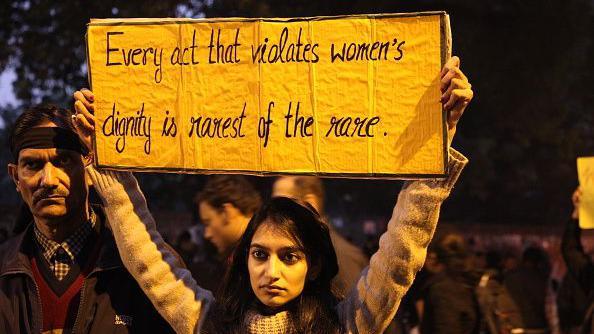 Every act that violates women's
dignity is rarest of the rare.